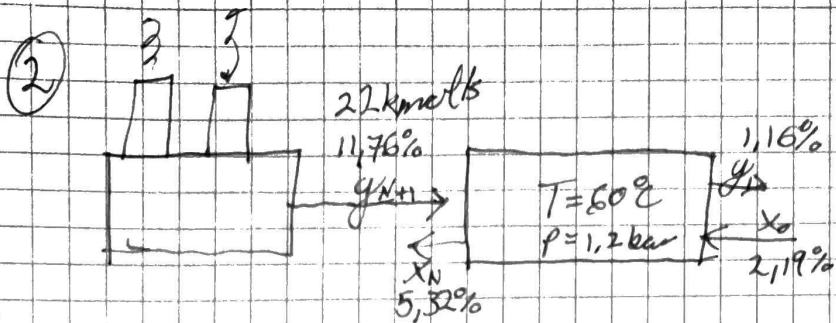 2
22 kmol/s
11,76%
yN+1
xN
5,32%
T=60°C
P=1,2 bar
1,16%
y1
x0
2,19%